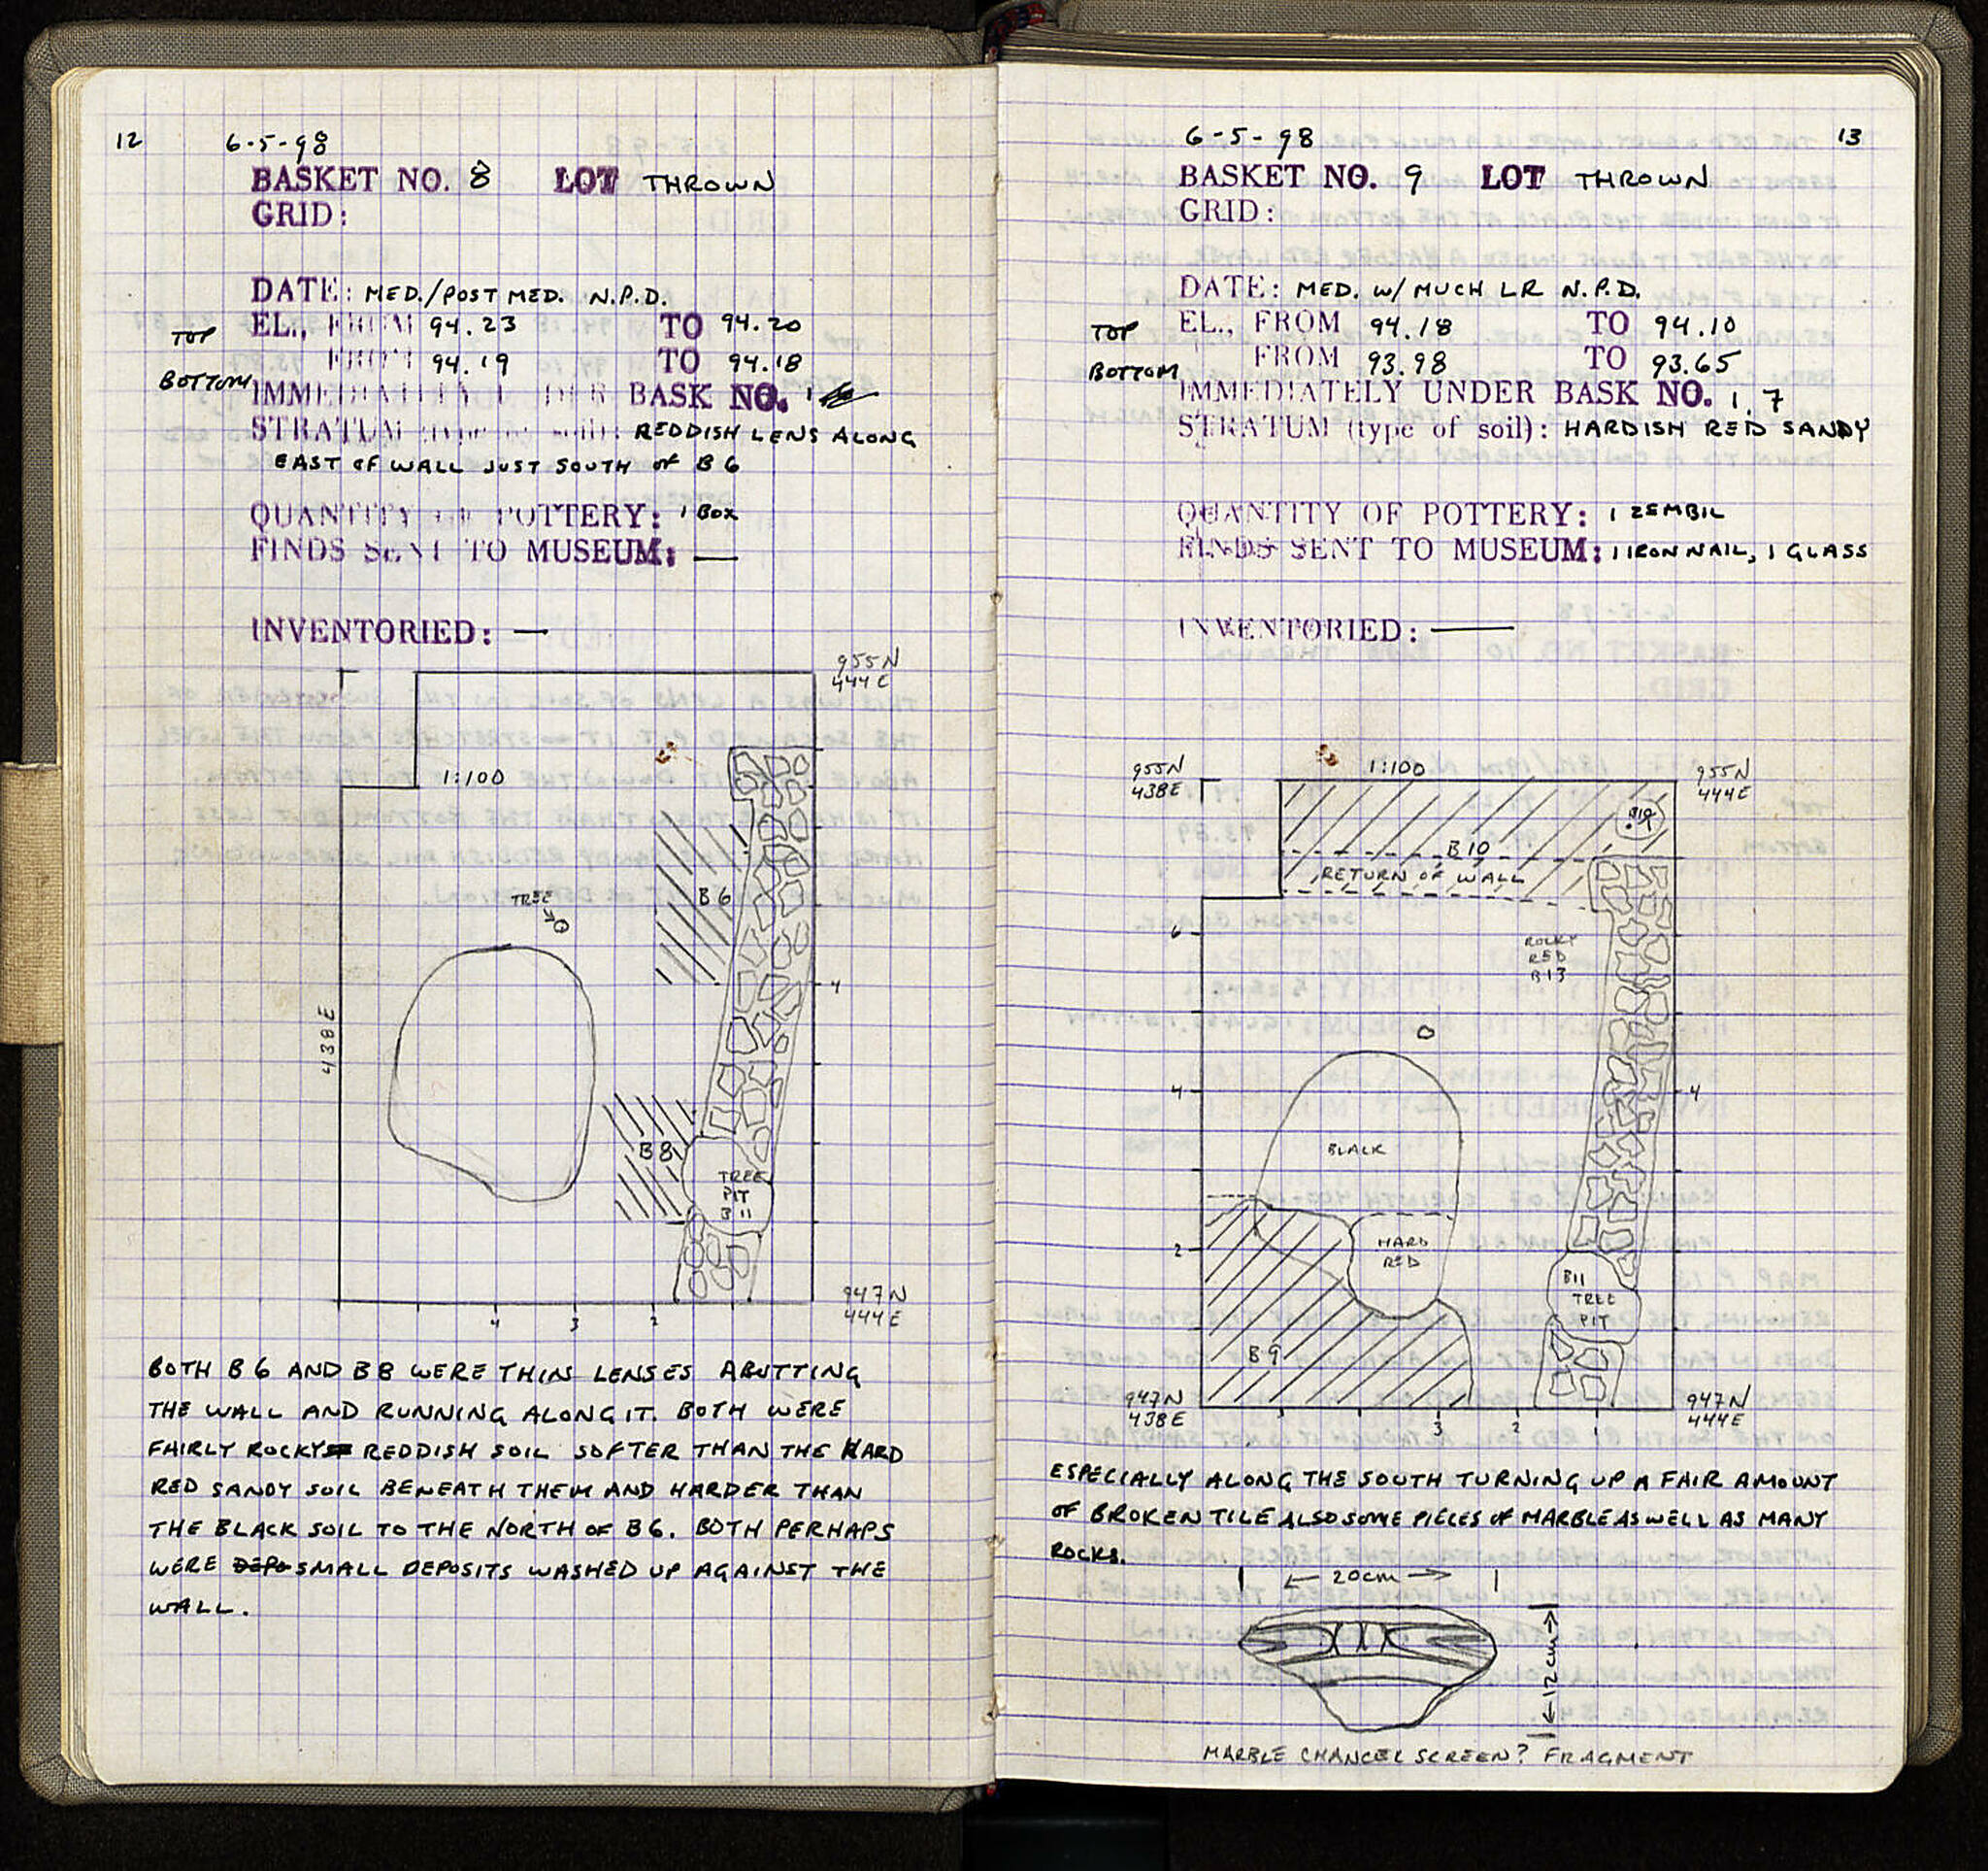 12 6-5-98
BASKET NO. 8 LOT THROWN
GRID:
DATE: MED./POST MED. N.P.D.
TOP EL., FROM 94.23 TO 94.20
FROM 94.19 TO 94.18
BOTTOM IMMEDIATELY UNDER BASK NO. 1
STRATUM (type of soil): REDDISH LENS ALONG
EAST OF WALL JUST SOUTH OF B6
QUANTITY OF POTTERY: 1 BOX
FINDS SENT TO MUSEUM: —
INVENTORIED: —
955N
444E
1:100
B6
TREE
438E
4
B8
TREE
PIT
B11
947N
444E
4 3 2
BOTH B6 AND B8 WERE THIN LENSES ABUTTING
THE WALL AND RUNNING ALONG IT. BOTH WERE
FAIRLY ROCKY REDDISH SOIL SOFTER THAN THE HARD
RED SANDY SOIL BENEATH THEM AND HARDER THAN
THE BLACK SOIL TO THE NORTH OF B6. BOTH PERHAPS
WERE DEPO SMALL DEPOSITS WASHED UP AGAINST THE
WALL.
6-5-98 13
BASKET NO. 9 LOT THROWN
GRID:
DATE: MED. W/ MUCH LR N.P.D.
TOP EL., FROM 94.18 TO 94.10
FROM 93.98 TO 93.65
BOTTOM IMMEDIATELY UNDER BASK NO. 1, 7
STRATUM (type of soil): HARDISH RED SANDY
QUANTITY OF POTTERY: 1 ZEMBIL
FINDS SENT TO MUSEUM: 1 IRON NAIL, 1 GLASS
INVENTORIED: —
955N
438E
1:100
955N
444E
B10
RETURN OF WALL
6
ROCKY
RED
B13
4 4
BLACK
2
HARD
RED
B11
TREE
PIT
B9
947N
438E
947N
444E
3 2 1
ESPECIALLY ALONG THE SOUTH TURNING UP A FAIR AMOUNT
OF BROKEN TILE ALSO SOME PIECES OF MARBLE AS WELL AS MANY
ROCKS.
20cm
12cm
MARBLE CHANCEL SCREEN? FRAGMENT